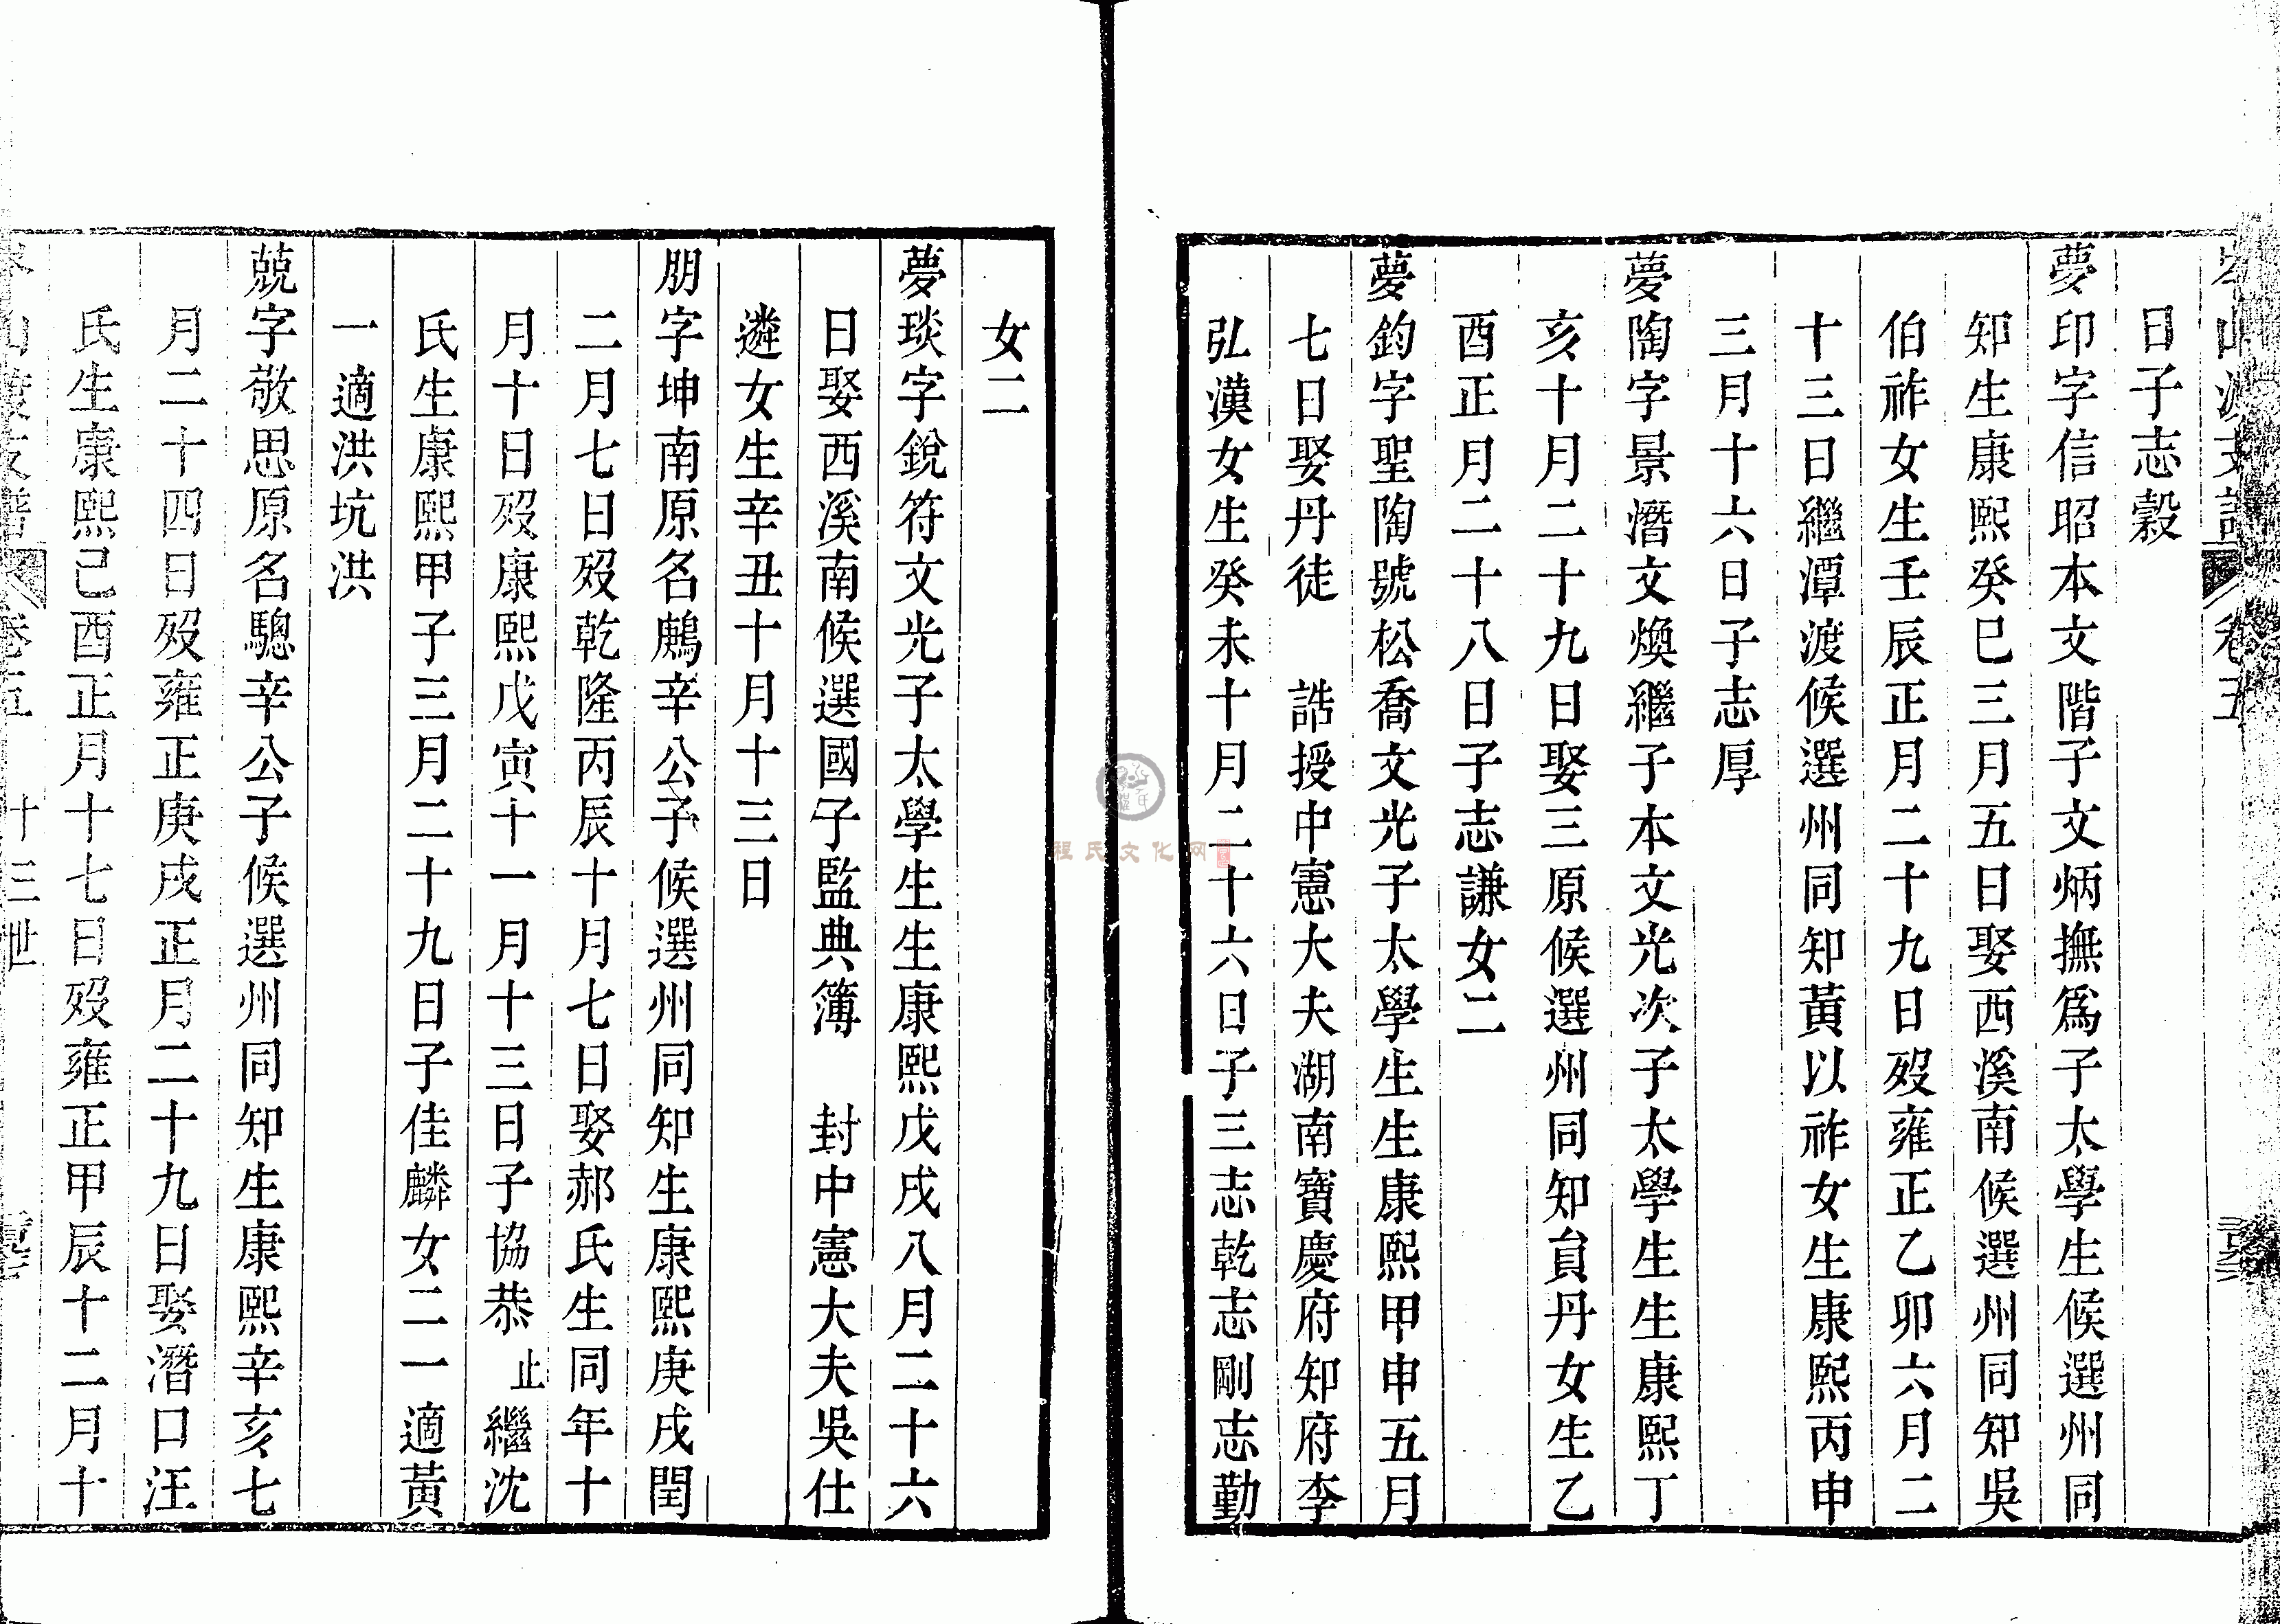 岑山渡支譜 卷五
日子志穀
夢印字信昭本文階子文炳撫為子太學生候選州同
知生康熙癸巳三月五日娶西溪南候選州同知吳
伯祚女生壬辰正月二十九日歿雍正乙卯六月二
十三日繼潭渡候選州同知黃以祚女生康熙丙申
三月十六日子志厚
夢陶字景潛文煥繼子本文光次子太學生生康熙丁
亥十月二十九日娶三原候選州同知負丹女生乙
酉正月二十八日子志謙女二
夢鈞字聖陶號松喬文光子太學生生康熙甲申五月
七日娶丹徒 誥授中憲大夫湖南寶慶府知府李
弘漢女生癸未十月二十六日子三志乾志剛志勤
程氏文化网
女二
夢琰字銳符文光子太學生生康熙戊戌八月二十六
日娶西溪南候選國子監典簿 封中憲大夫吳仕
遴女生辛丑十月十三日
朋字坤南原名鷓辛公子候選州同知生康熙庚戌閏
二月七日歿乾隆丙辰十月七日娶郝氏生同年十
月十日歿康熙戊寅十一月十三日子協恭止繼沈
氏生康熙甲子三月二十九日子佳麟女二一適黃
一適洪坑洪
兢字敬思原名驄辛公子候選州同知生康熙辛亥七
月二十四日歿雍正庚戌正月二十九日娶潛口汪
氏生康熙己酉正月十七日歿雍正甲辰十二月十
岑山渡支譜 卷五 十三世